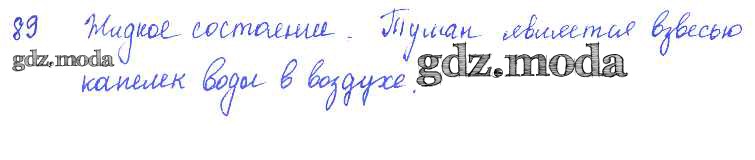 89 Жидкое состояние. Туман является взвесью
gdz.moda капелек воды в воздухе. gdz.moda